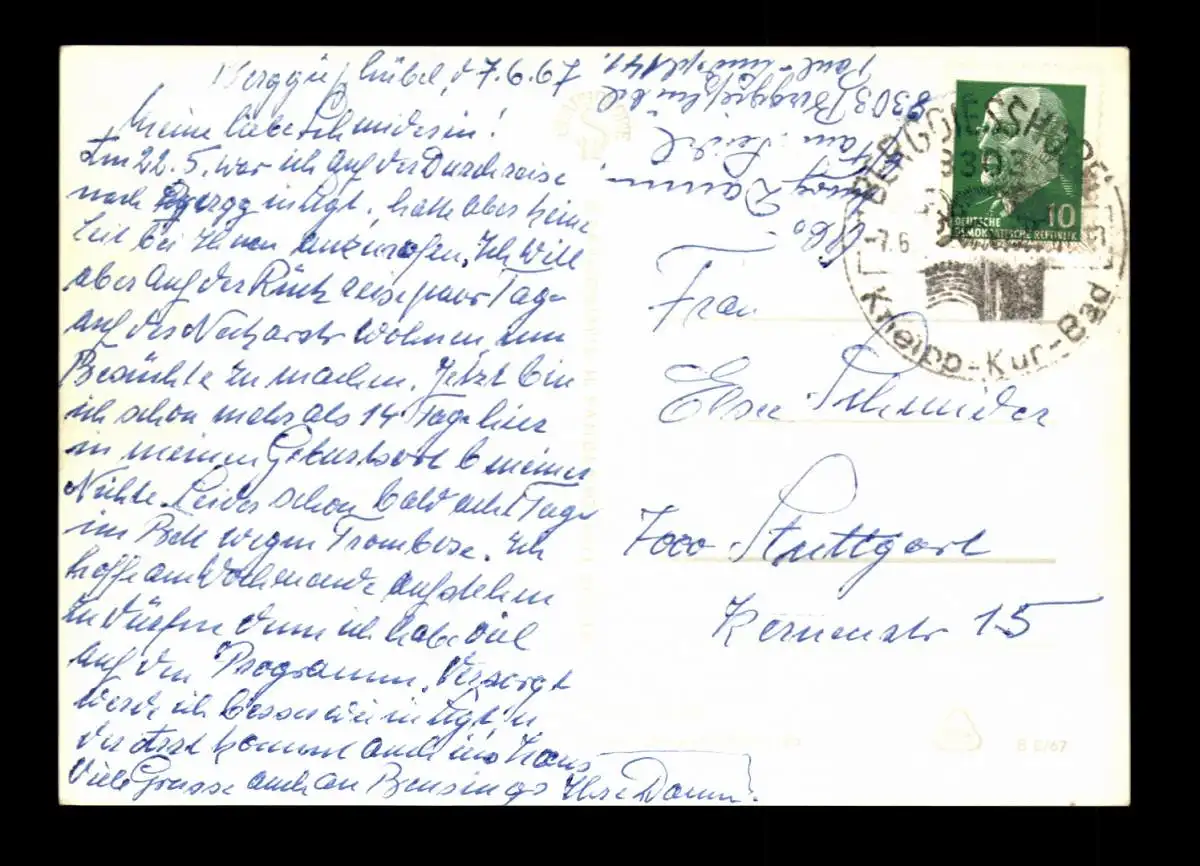 Berggießhübel, d 7.6.67
Meine liebe Schneiderin!
Am 22.5. war ich auf der Durchreise
nach in Stgt, hatte aber keine
Zeit bei Ihnen anzurufen. Ich will
aber auf der Rückreise paar Tage
auf der Neckarstr wohnen, um
Besuche zu machen. Jetzt bin
ich schon mehr als 14 Tage hier
in meinem Geburtsort b meiner
Nichte. Leider schon bald acht Tage
im Bett wegen Trombose. Ich
hoffe am Wochenende aufstehen
zu dürfen denn ich habe viel
auf dem Programm. Versorgt
werde ich besser wie in Stgt u
der Arzt kommt auch ins Haus
Viele Grüsse auch an Bensings Ilse Damm.
Abs. Damm
Frau Seidel
8303 Berggießhübel
Frau
Else Schneider
7000 Stuttgart
Kernerstr 15
BERGGIESSHÜBEL
8303
-7.6
Kneipp-Kur-Bad
10
DEUTSCHE
DEMOKRATISCHE REPUBLIK
B 6/67